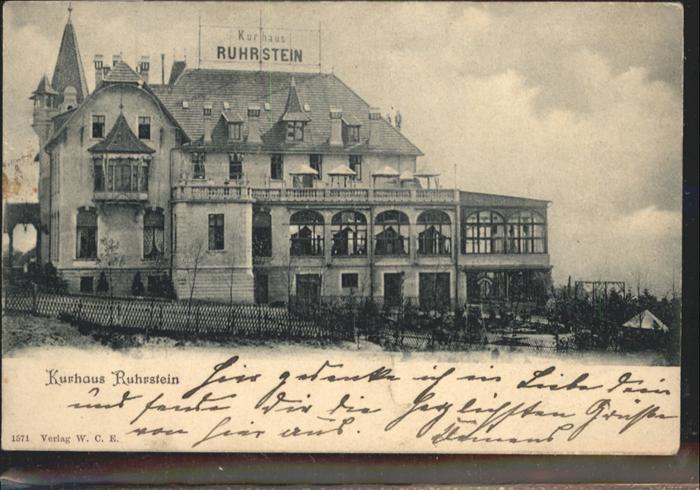 Kurhaus
RUHRSTEIN
Kurhaus Ruhrstein
Hier gedenke ich in Liebe dein
und sende Dir die herzlichsten Grüße
von hier aus.
1571 Verlag W. C. E.